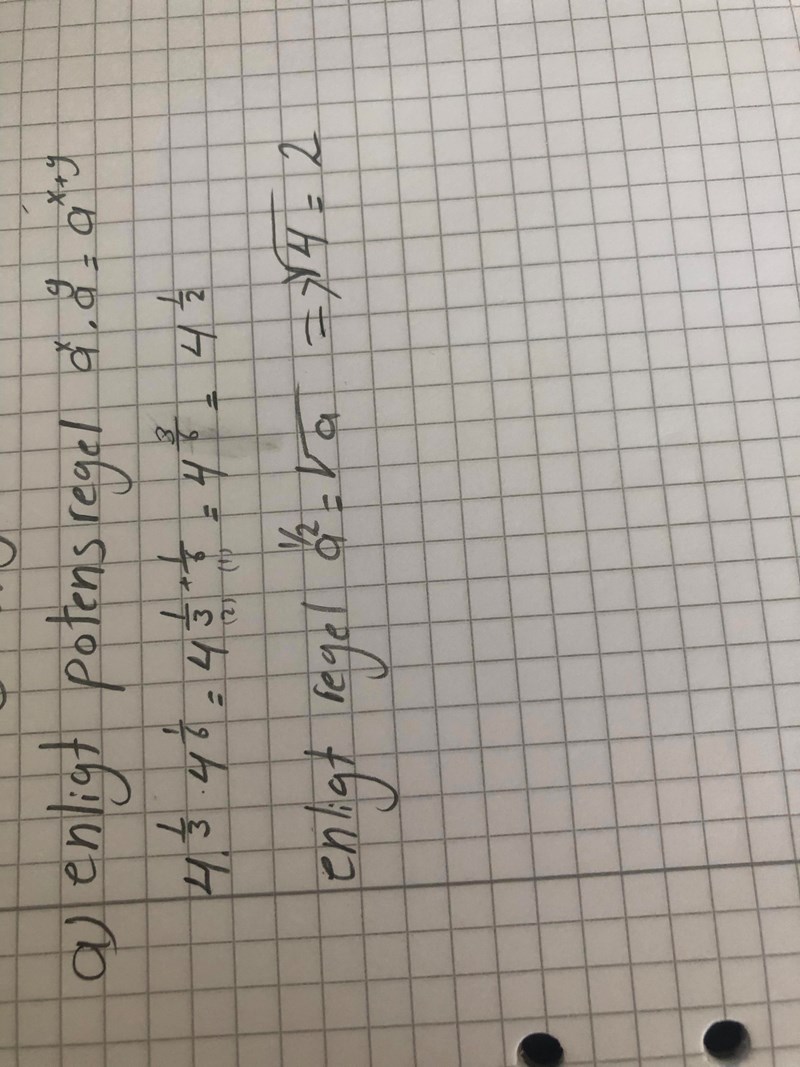 a) enligt potensregel a^x · a^y = a^(x+y)
4^(1/3) · 4^(1/6) = 4^(1/3 + 1/6) = 4^(3/6) = 4^(1/2)
(2) (1)
enligt regel a^(1/2) = √a => √4 = 2